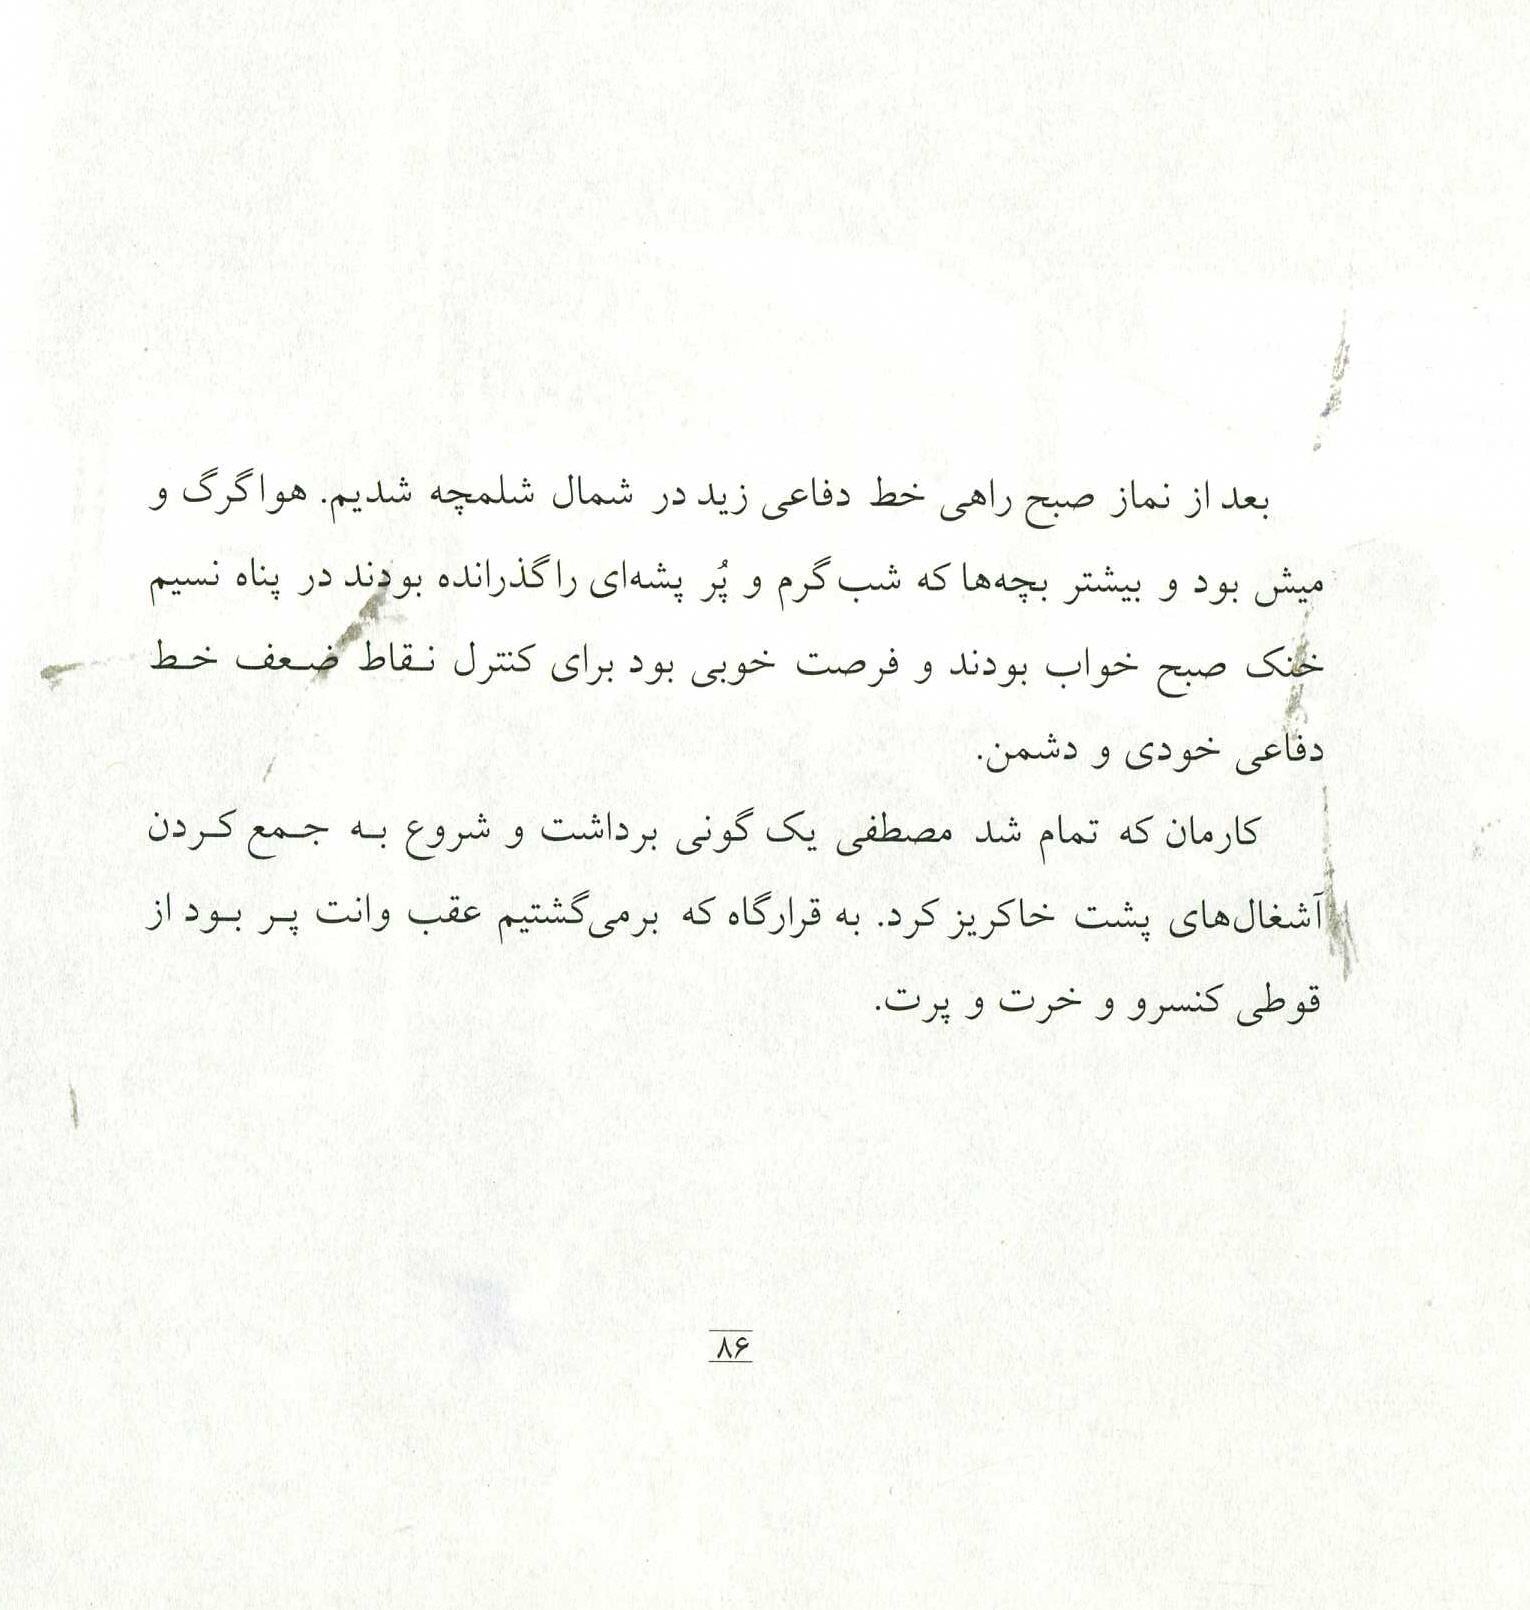 بعد از نماز صبح راهی خط دفاعی زید در شمال شلمچه شدیم. هوا گرگ و
میش بود و بیشتر بچه‌ها که شب گرم و پُر پشه‌ای را گذرانده بودند در پناه نسیم
خنک صبح خواب بودند و فرصت خوبی بود برای کنترل نقاط ضعف خط
دفاعی خودی و دشمن.
کارمان که تمام شد مصطفی یک گونی برداشت و شروع به جمع کردن
آشغال‌های پشت خاکریز کرد. به قرارگاه که برمی‌گشتیم عقب وانت پر بود از
قوطی کنسرو و خرت و پرت.
۸۶